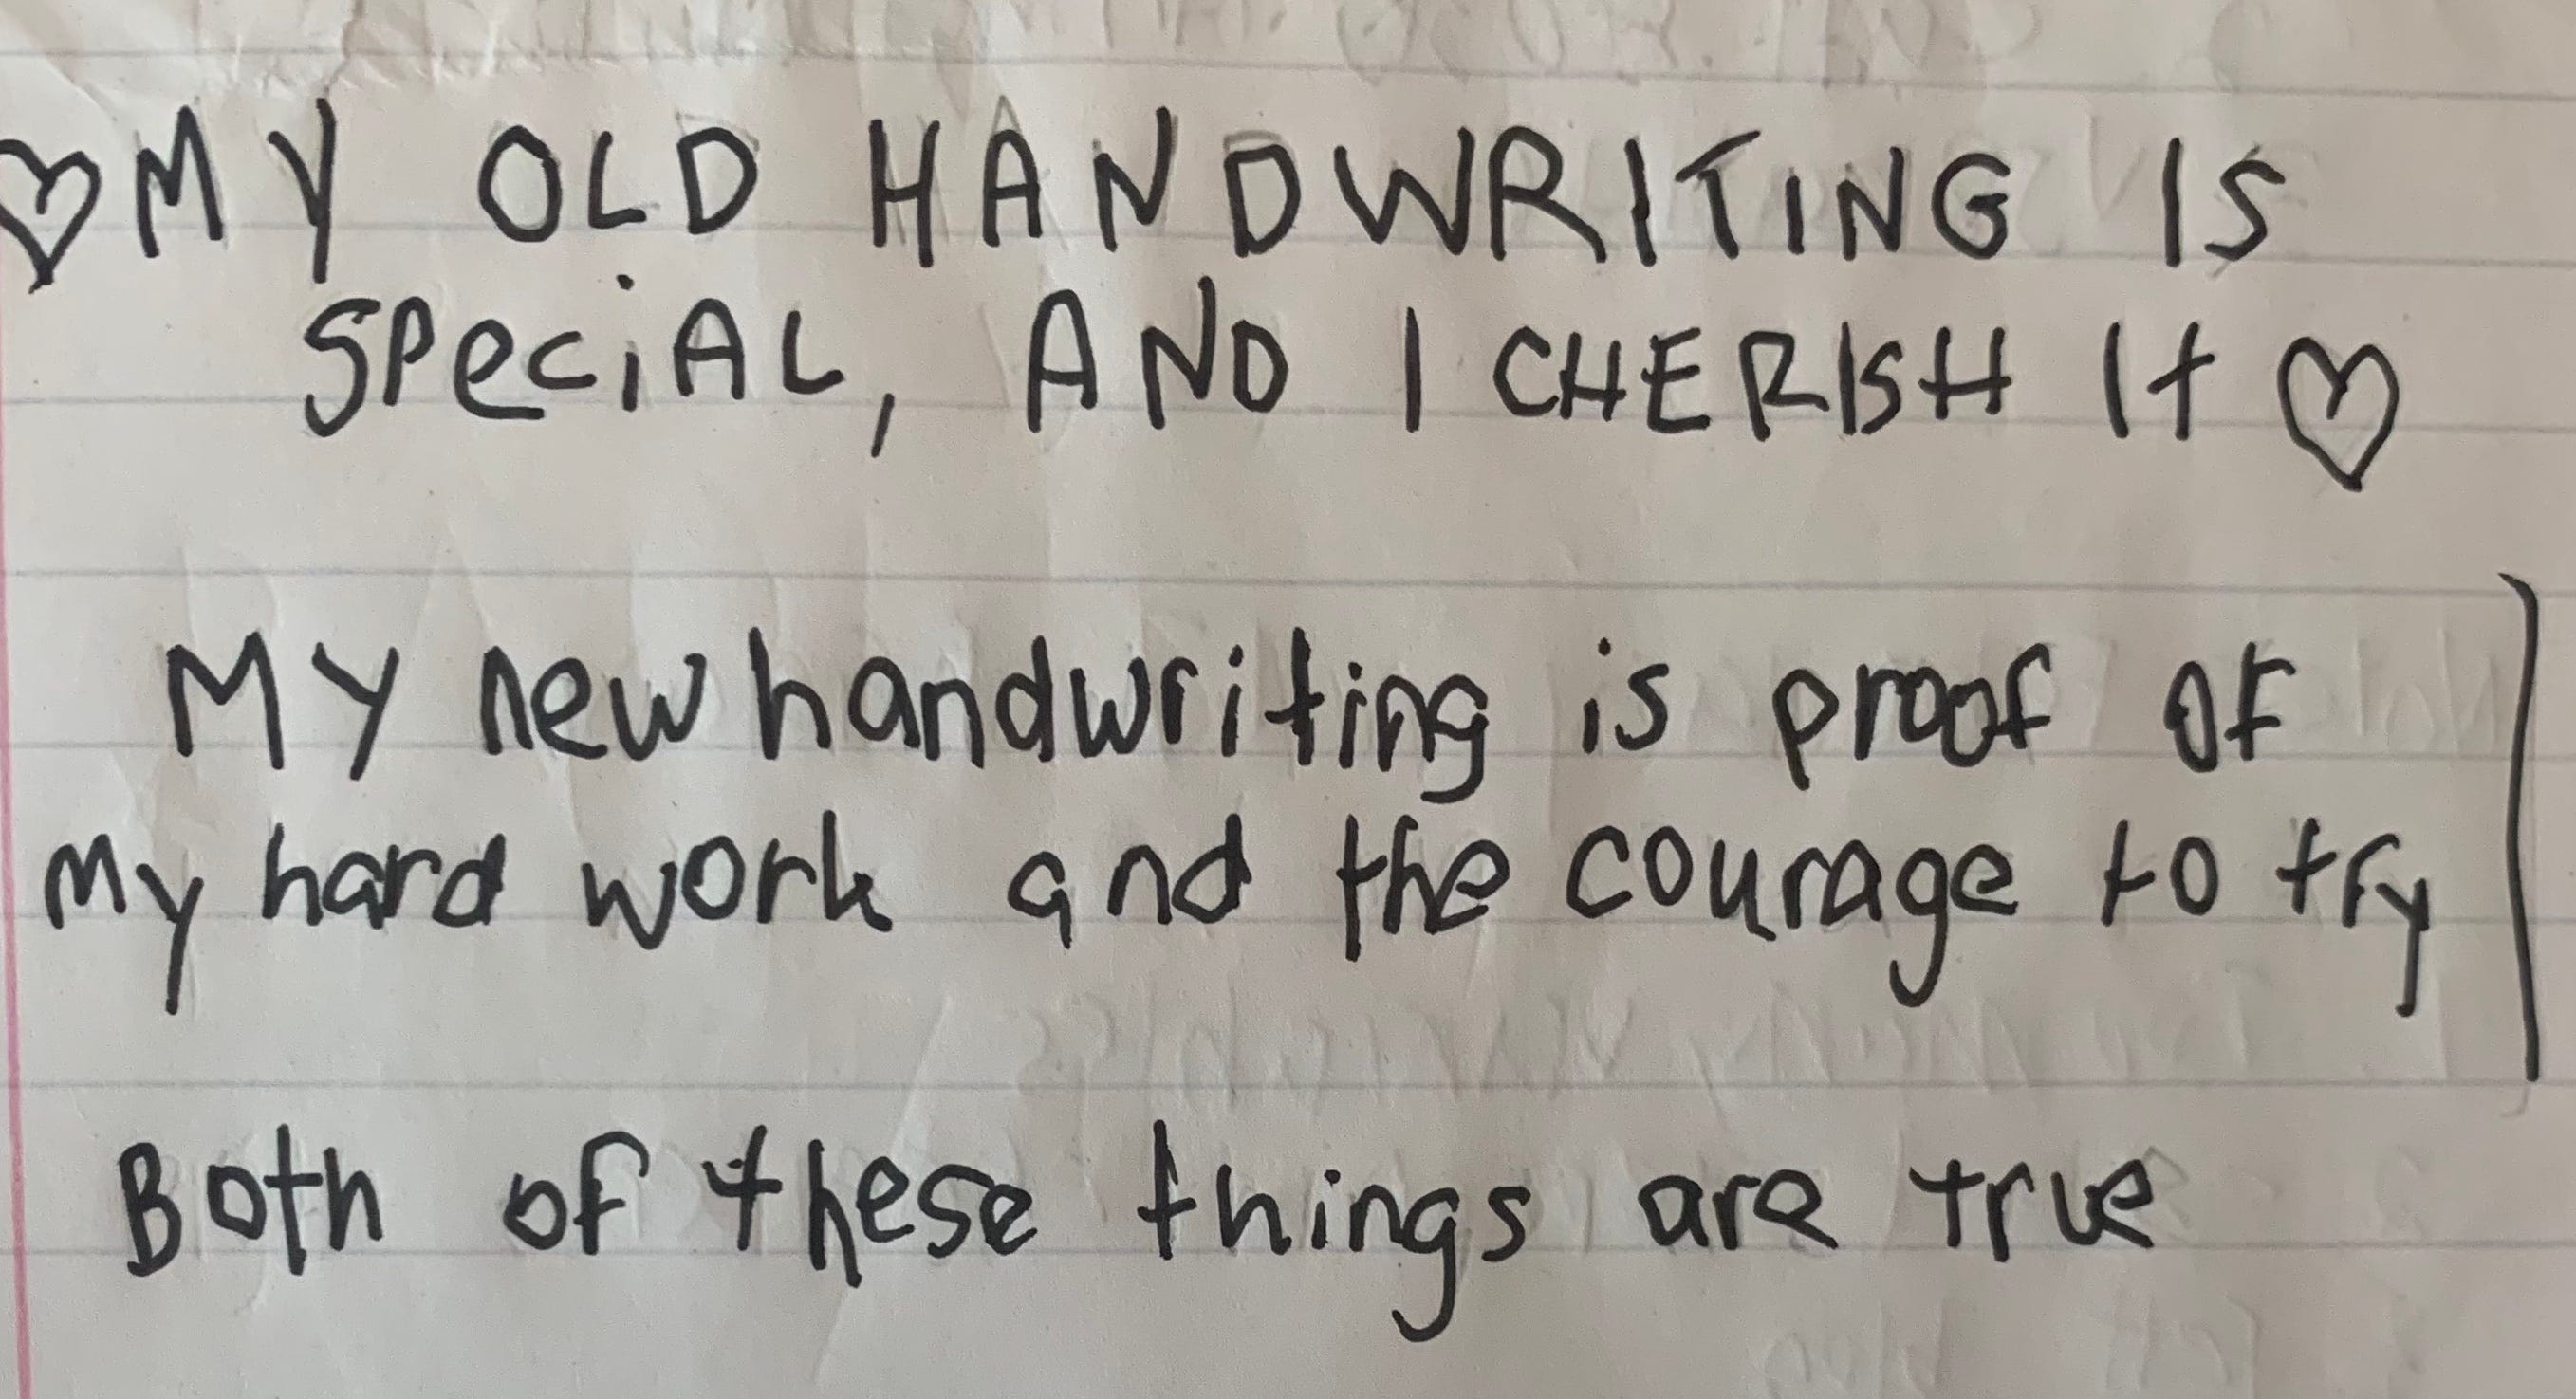 ♡MY OLD HANDWRITING IS
SPeCiAL, AND I CHERISH It♡
My new handwriting is proof of
my hard work and the courage to try
Both of these things are true